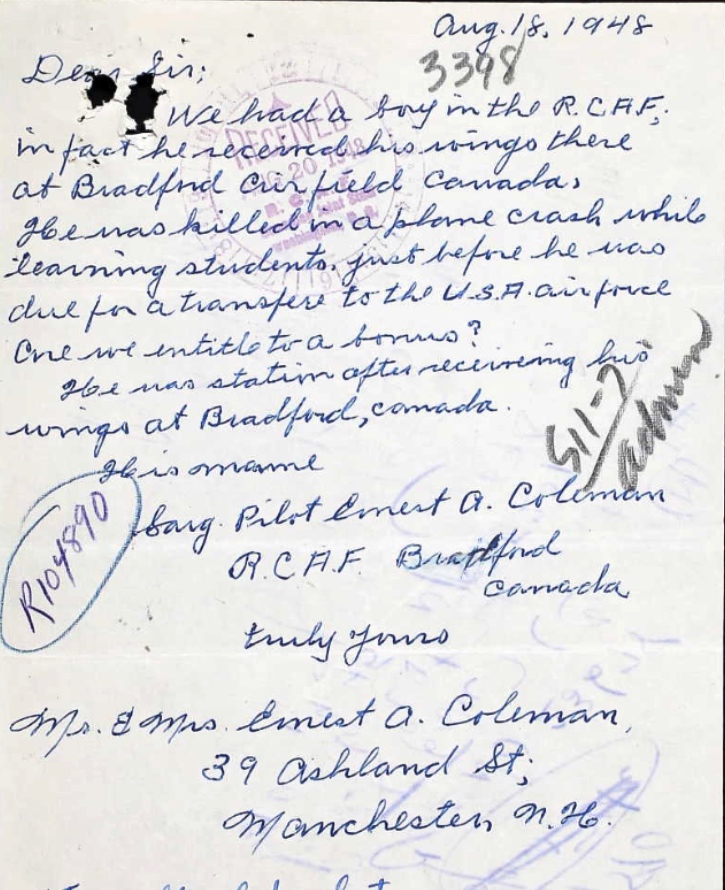 Aug. 18, 1948
3398
Dear Sir;
We had a boy in the R.C.A.F;
in fact he received his wings there
at Bradford Airfield Canada,
He was killed in a plane crash while
learning students. just before he was
due for a transfere to the U.S.A. air force
Are we entitle to a bonus?
He was station after receiving his
wings at Bradford, canada.
511-7
Admin
His name
Sarg. Pilot Ernest A. Coleman
R104890
R.C.A.F. Bradford
Canada
truly yours
Mr. & Mrs. Ernest A. Coleman,
39 Ashland St;
Manchester, N.H.
RECEIVED
AUG 20 1948